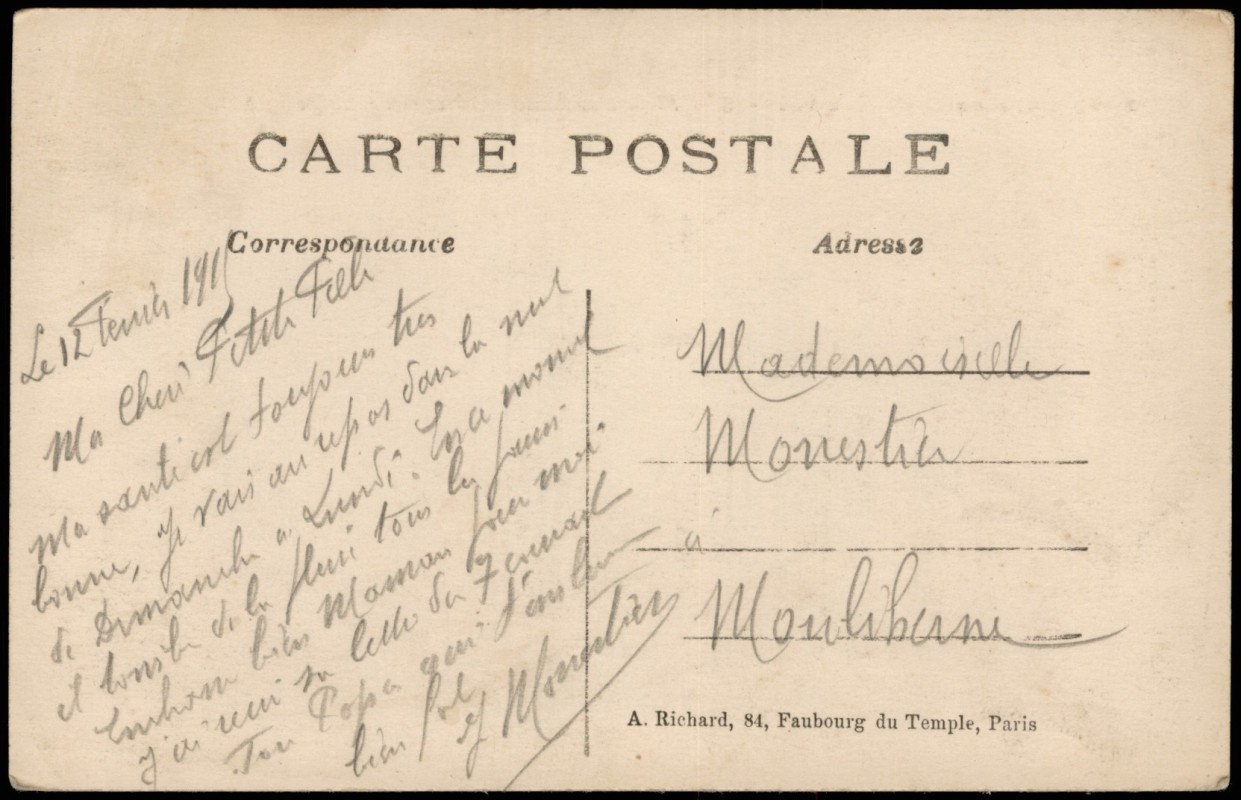 CARTE POSTALE
Correspondance
Adresse
Le 12 Fevrier 1915
Ma Cheri Petite Fille
Ma santé est toujours tres
bonne, je vais au repos dans la nuit
de Dimanche a Lundi. En ce moment
il tombe de la pluie tous les jours
Embrasse bien Maman pour moi.
j'ai recu sa lettre du 7 courant
Ton Papa qui t'aime
bien fort
Monestier
Mademoiselle
Monestier
à
Mouliherne
A. Richard, 84, Faubourg du Temple, Paris